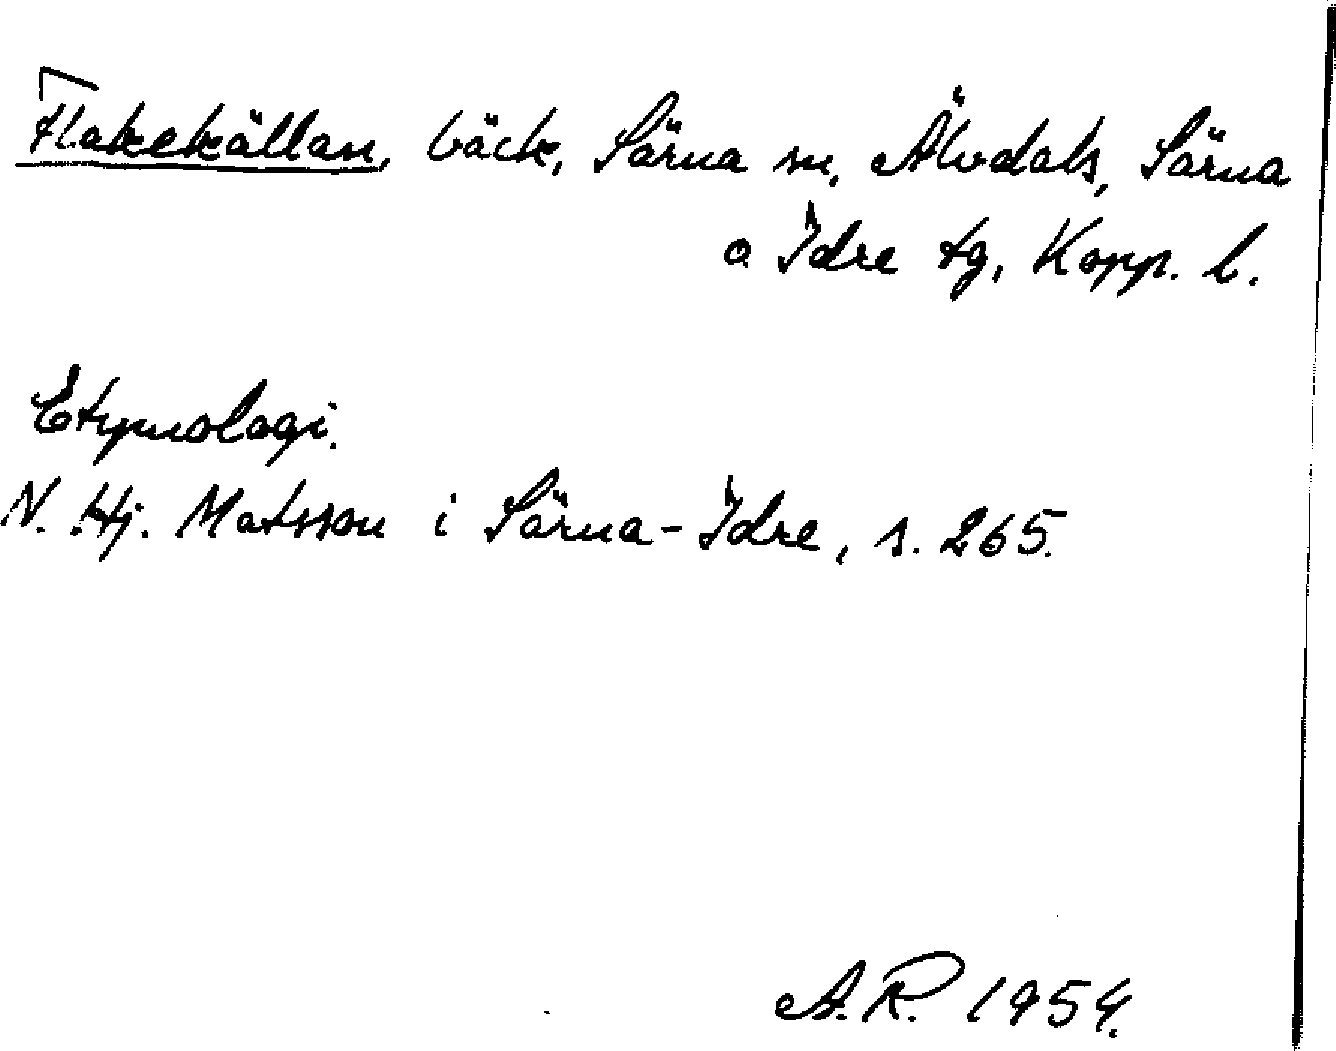 Flakekällan, bäck, Särna sn, Älvdals, Särna
o Idre tg, Kopp. l.
Etymologi.
N. Hj. Matsson i Särna-Idre, s. 265.
A.R. 1954.